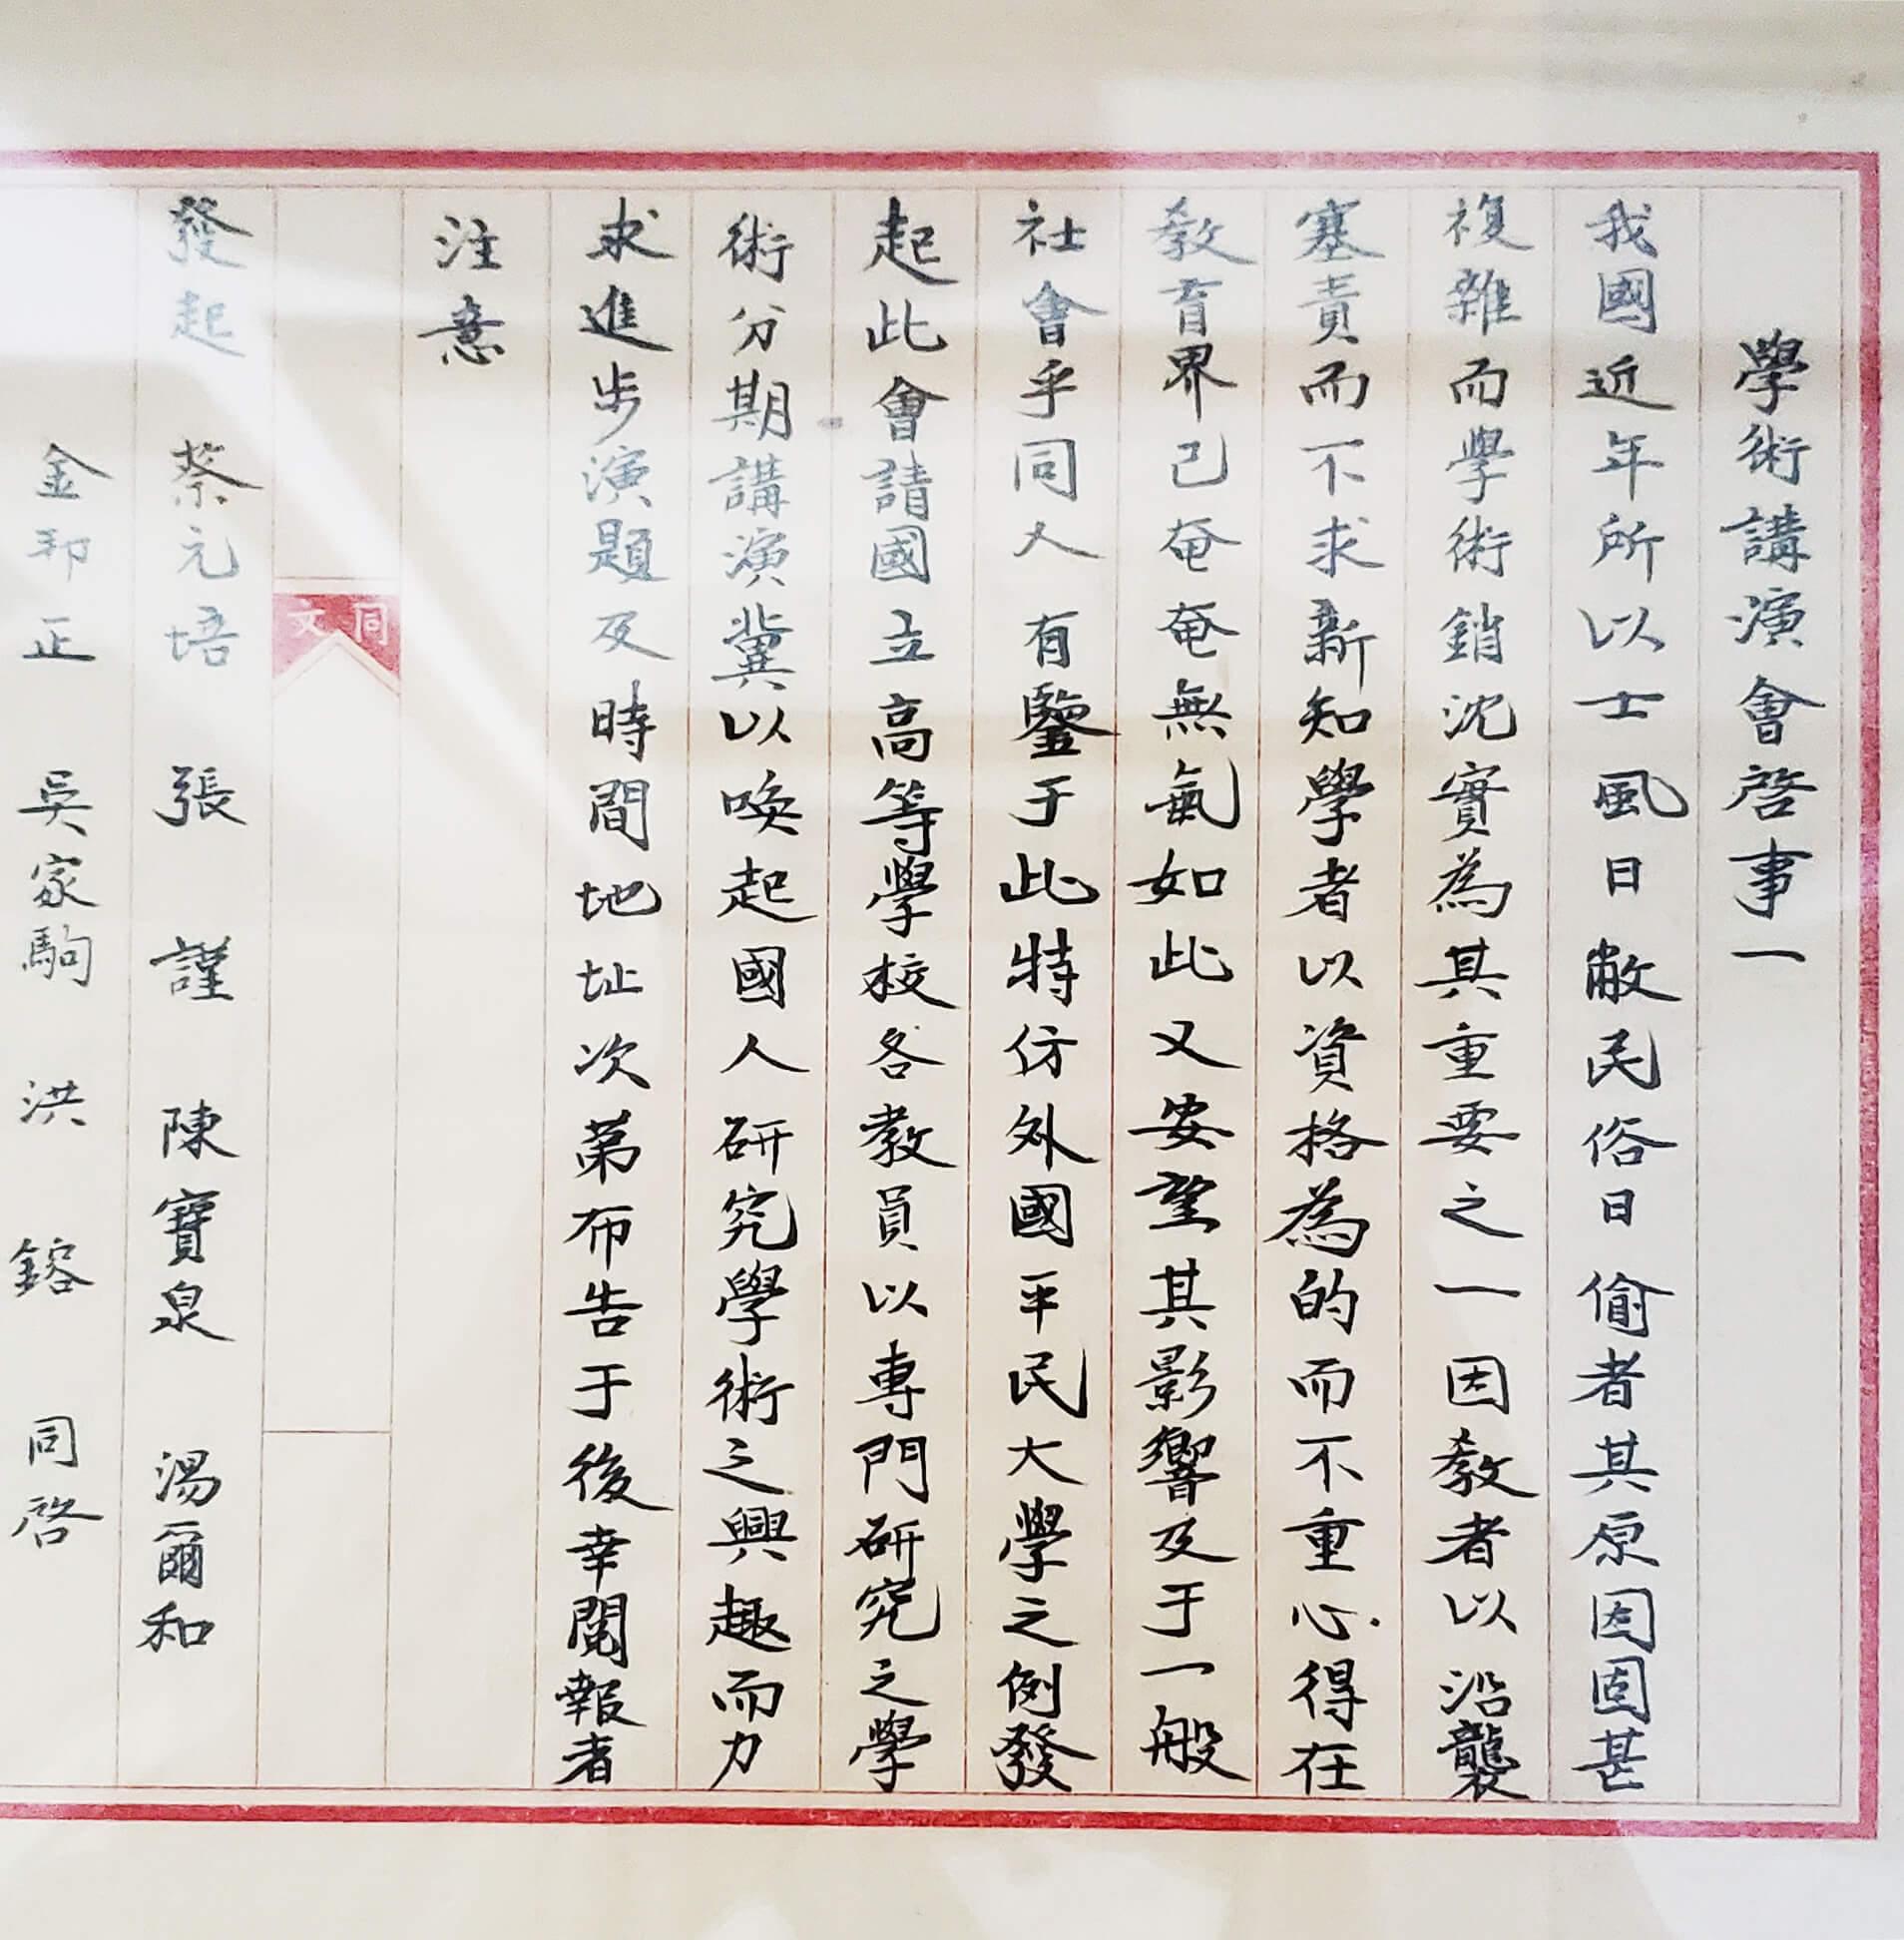 學術講演會啓事一
我國近年所以士風日敝民俗日偷者其原因固甚
複雜而學術銷沈實為其重要之一因教者以沿襲
塞責而不求新知學者以資格為的而不重心得在
教育界已奄奄無氣如此又安望其影響及于一般
社會乎同人有鑒于此特仿外國平民大學之例發
起此會請國立高等學校各教員以專門研究之學
術分期講演冀以喚起國人研究學術之興趣而力
求進步演題及時間地址次第布告于後幸閱報者
注意
同文
發起 蔡元培 張謹 陳寶泉 湯爾和
金邦正 吳家駒 洪鎔 同啓